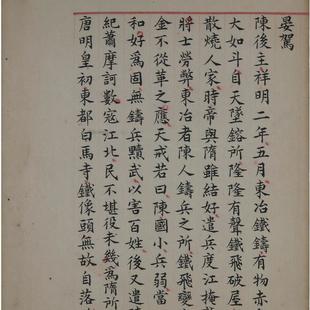 晏駕
陳後主祥明二年五月東冶鐵鑄有物赤色
大如斗自天墜鎔所隆隆有聲鐵飛破屋而
散燒人家時帝與隋雖結好遣兵度江掩
將士勞弊東冶者陳人鑄兵之所鐵飛變
金不從革之應天戒若曰陳國小兵弱當
和好為固無鑄兵黷武以害百姓後又遣
紀蕭摩訶數寇江北民不堪役未幾為隋所
唐明皇初東都白馬寺鐵像頭無故自落